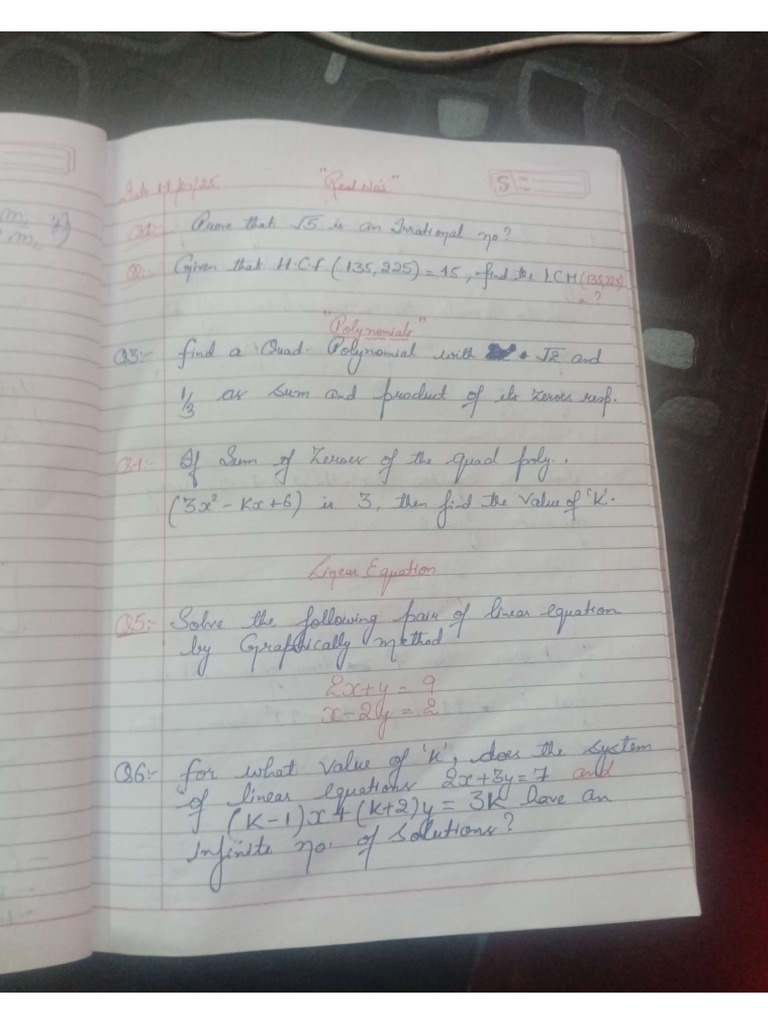 "Real No's"
5
Q1:- Prove that √5 is an Irrational no?
Q2:- Given that H.C.f (135,225) = 45, find the LCM (135,225)
= ?
"Polynomials"
Q3:- find a Quad. Polynomial with √2 and
1/3 as sum and product of its zeroes resp.
Q4:- If Sum of Zeroes of the quad poly..
(3x² - Kx + 6) is 3, then find the value of 'K'.
Linear Equation
Q5:- Solve the following pair of linear equation
by Graphically method
2x+y = 9
x-2y = 2
Q6:- for what value of 'k', does the system
of linear equations 2x+3y=7 and
(k-1)x+(k+2)y = 3k have an
Infinite no. of solutions?